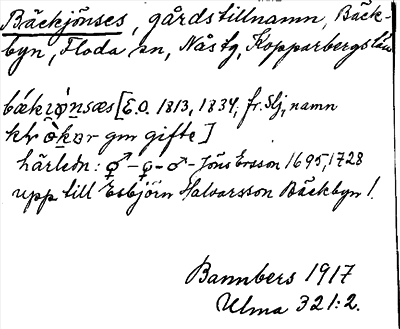 Bäckjönses, gårdstillnamn, Bäck-
byn, Floda sn, Nås tg, Kopparbergs län
[E.O. 1813, 1834, fr. Slj, namn
gm gifte]
härledn: ♂-♀-♂- Jöns Ersson 1695, 1728
upp till Esbjörn Halvarsson Bäckbyn 1.
Bannbers 1917
Ulma 321:2.